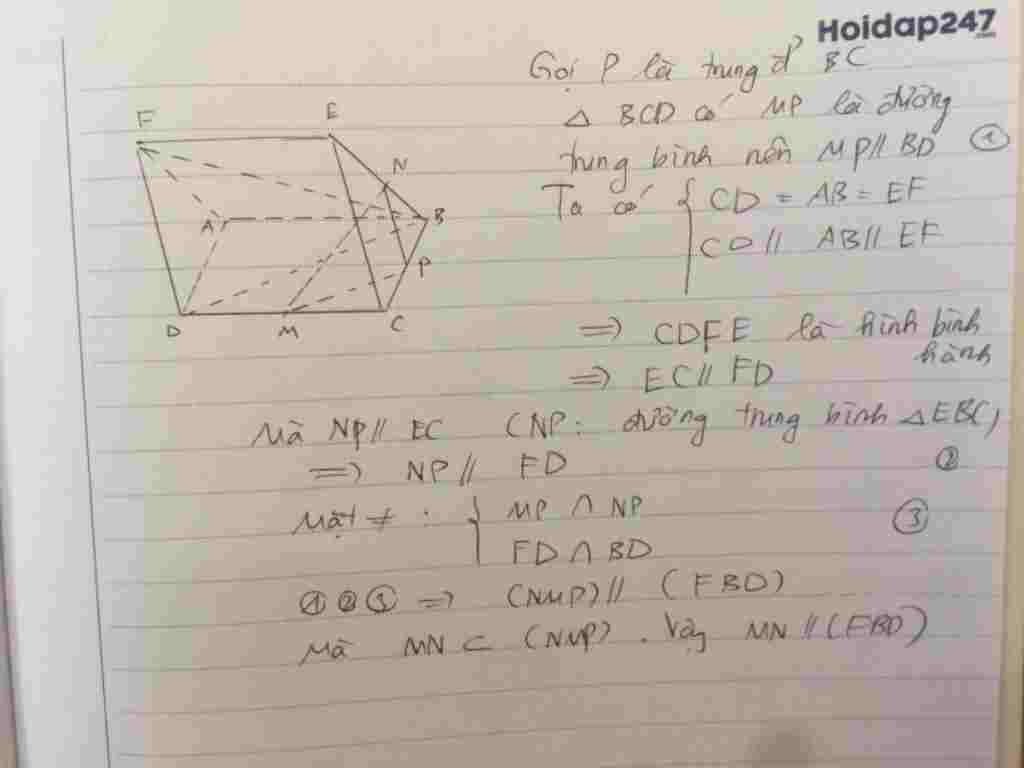 Hoidap247
.com
Gọi P là trung đ' BC
△ BCD có MP là đường
trung bình nên MP // BD ①
Ta có { CD = AB = EF
CD // AB // EF
=> CDFE là hình bình
hành
=> EC // FD
Mà NP // EC (NP: đường trung bình △EBC)
=> NP // FD ②
Mặt ≠ : { MP ∩ NP ③
FD ∩ BD
① ② ③ => (NMP) // (FBD)
Mà MN ⊂ (NMP) . Vậy MN // (FBD)
F
E
N
A
B
P
D
M
C